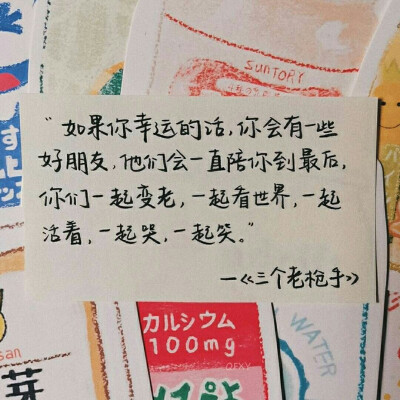 SUNTORY
“如果你幸运的话,你会有一些
好朋友,他们会一直陪你到最后,
你们一起变老,一起看世界,一起
活着,一起哭,一起笑。”
—《三个老枪手》
カルシウム
100mg
WATER
san
芽